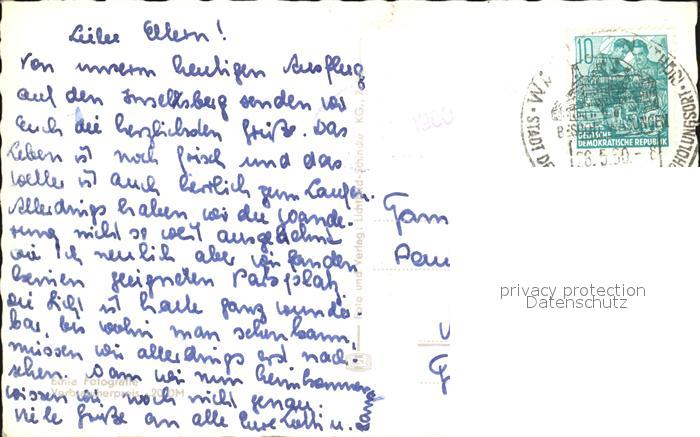 Liebe Eltern!
Von unserm heutigen Ausflug
auf den Inselsberg senden wir
Euch die herzlichsten Grüße. Das
Leben ist noch frisch und das
Wetter ist auch herrlich zum Laufen.
Allerdings haben wir die Wande-
rung nicht so weit ausgedehnt
wie ich neulich aber wir fanden
keinen geeigneten Parkplatz
die Sicht ist heute ganz wunder
bar, bis wohin man sehen kann,
müssen wir allerdings erst nach-
sehen. Wann wir nun heimkommen
wissen wir noch nicht genau.
Viele Grüße an alle Eure Lotti u.
Echte Fotografie
Verbraucherpreis 20 DM
Foto und Verlag:
1960
Fam
10
DEUTSCHE
DEMOKRATISCHE REPUBLIK
26.5.60.-8
STADT DE
privacy protection
Datenschutz